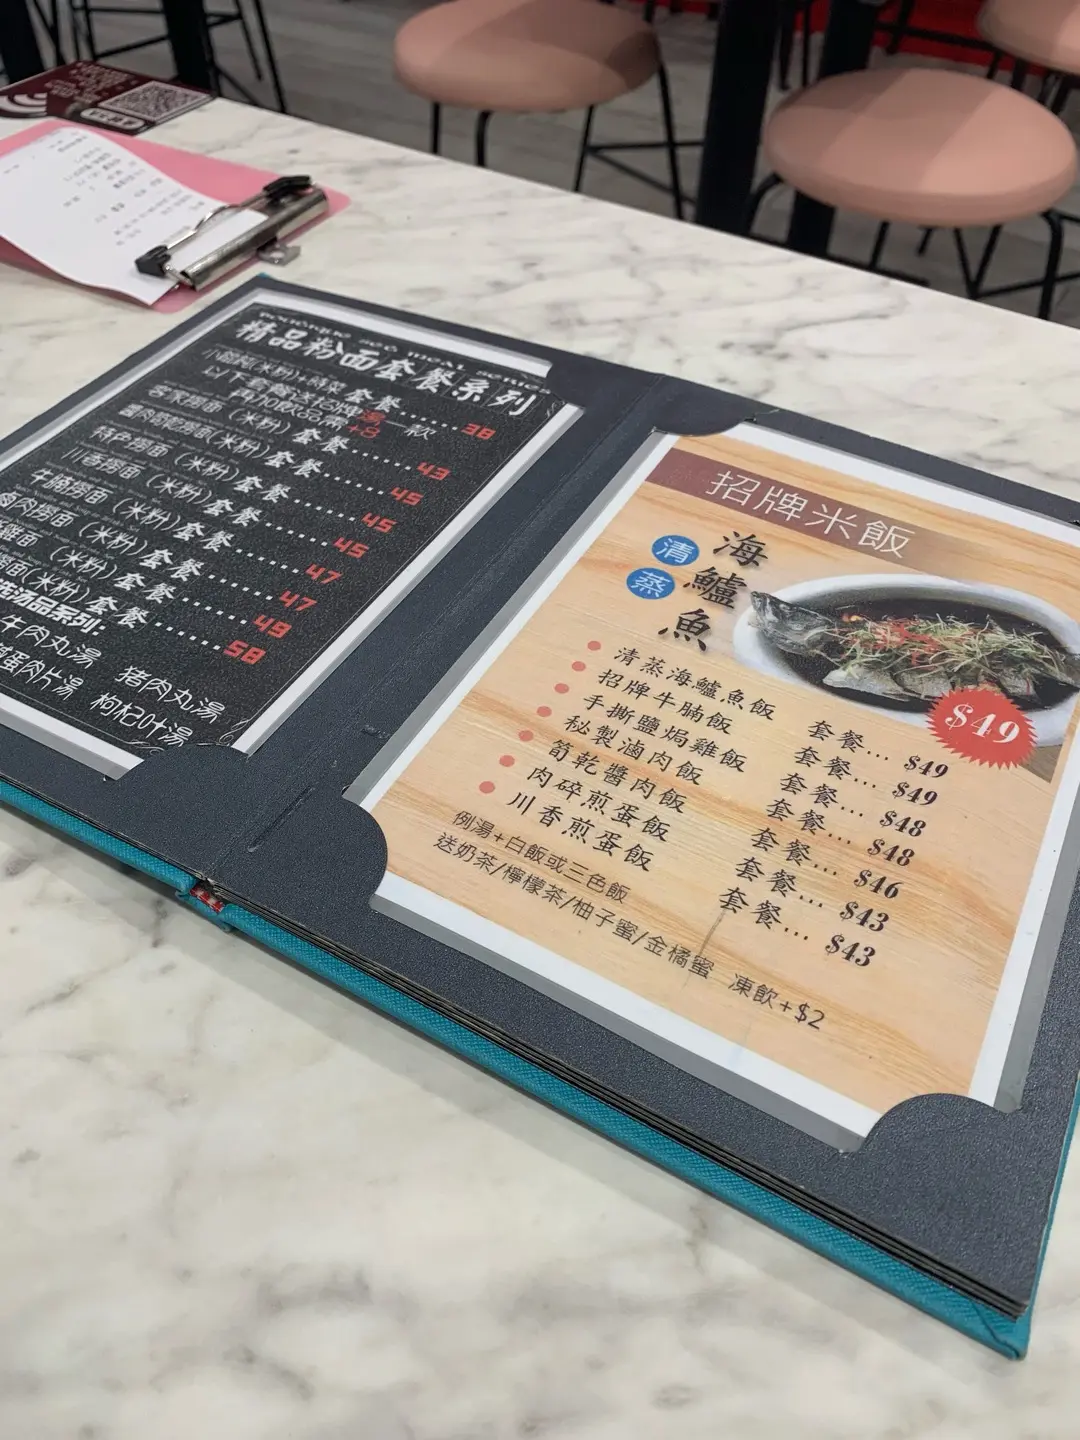 精品粉面套餐系列
(米粉)+時菜 套餐......38
以下套餐送招牌湯一款
再加飲品需+8
客家撈面(米粉)套餐......43
(米粉)套餐......45
特产撈面(米粉)套餐......45
川香撈面(米粉)套餐......45
牛腩撈面(米粉)套餐......47
肉撈面(米粉)套餐......47
雞面(米粉)套餐......49
撈面(米粉)套餐......58
汤品系列:
牛肉丸湯 猪肉丸湯
蛋肉片湯 枸杞叶湯
招牌米飯
清蒸
海鱸魚
$49
清蒸海鱸魚飯 套餐... $49
招牌牛腩飯 套餐... $49
手撕鹽焗雞飯 套餐... $48
秘製滷肉飯 套餐... $48
筍乾醬肉飯 套餐... $46
肉碎煎蛋飯 套餐... $43
川香煎蛋飯 套餐... $43
例湯+白飯或三色飯
送奶茶/檸檬茶/柚子蜜/金橘蜜 凍飲+$2